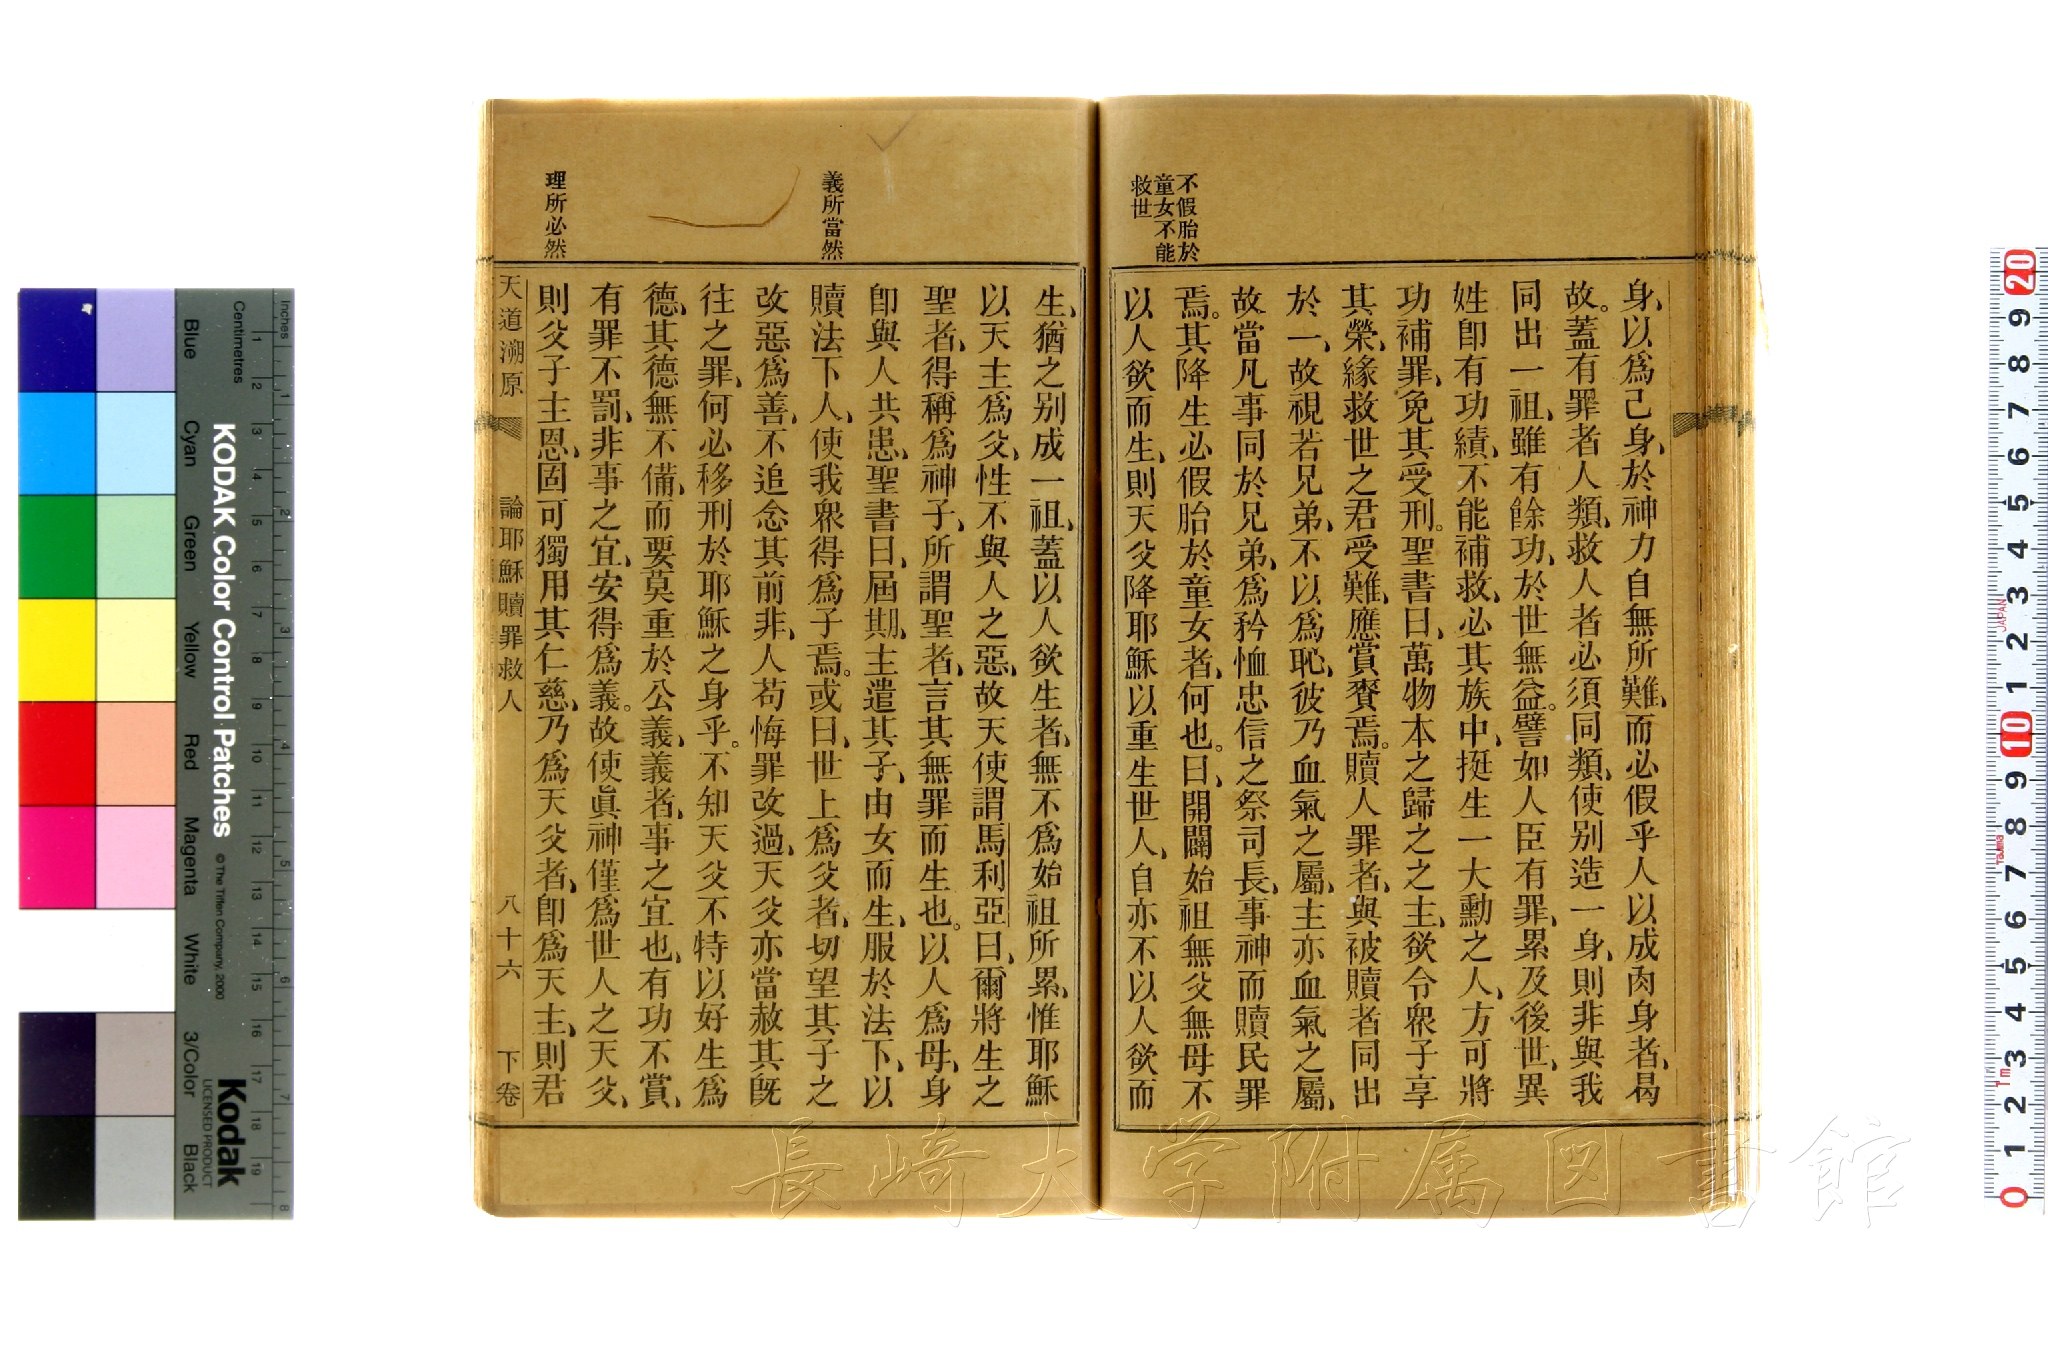 不假胎於
童女不能
救世
身、以爲己身、於神力自無所難、而必假乎人以成肉身者、曷
故。蓋有罪者人類、救人者必須同類、使别造一身、則非與我
同出一祖、雖有餘功、於世無益。譬如人臣有罪、累及後世、異
姓卽有功績、不能補救、必其族中、挺生一大勳之人、方可將
功補罪、免其受刑。聖書曰、萬物本之歸之之主、欲令衆子享
其榮、緣救世之君受難、應賞賚焉。贖人罪者、與被贖者同出
於一、故視若兄弟、不以爲恥、彼乃血氣之屬、主亦血氣之屬、
故當凡事同於兄弟、爲矜恤忠信之祭司長、事神而贖民罪
焉。其降生必假胎於童女者、何也。曰、開闢始祖無父無母、不
以人欲而生、則天父降耶穌以重生世人、自亦不以人欲而
義所當然
理所必然
生、猶之别成一祖、蓋以人欲生者、無不爲始祖所累、惟耶穌
以天主爲父、性不與人之惡、故天使謂馬利亞曰、爾將生之
聖者、得稱爲神子、所謂聖者、言其無罪而生也。以人爲母、身
卽與人共患、聖書曰、屆期、主遣其子、由女而生、服於法下、以
贖法下人、使我衆得爲子焉。或曰、世上爲父者、切望其子之
改惡爲善、不追念其前非、人苟悔罪改過、天父亦當赦其旣
往之罪、何必移刑於耶穌之身乎。不知天父不特以好生爲
德、其德無不備、而要莫重於公義、義者、事之宜也、有功不賞、
有罪不罰、非事之宜、安得爲義。故使眞神僅爲世人之天父、
則父子主恩、固可獨用其仁慈、乃爲天父者、卽爲天主、則君
天道溯原 論耶穌贖罪救人 八十六 下卷
長崎大学附属図書館
KODAK Color Control Patches © The Tiffen Company, 2000
Kodak
LICENSED PRODUCT
Inches 1 2 3 4 5 6 7 8
Centimetres 1 2 3 4 5 6 7 8 9 10 11 12 13 14 15 16 17 18 19
Blue Cyan Green Yellow Red Magenta White 3/Color Black
20 9 8 7 6 5 4 3 2 1 10 9 8 7 6 5 4 3 2 1 0
JAPAN